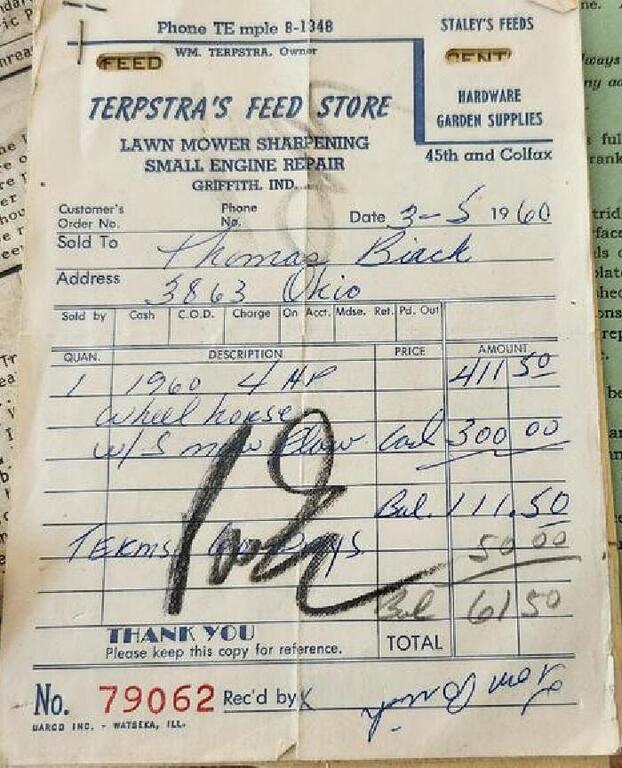 Phone TE mple 8-1348
WM. TERPSTRA, Owner
STALEY'S FEEDS
FEED
TERPSTRA'S FEED STORE
HARDWARE
GARDEN SUPPLIES
LAWN MOWER SHARPENING
SMALL ENGINE REPAIR
GRIFFITH, IND.
45th and Colfax
Customer's Order No. Phone No. Date 3-5 1960
Sold To Thomas Black
Address 3863 Ohio
Sold by Cash C.O.D. Charge On Acct. Mdse. Ret. Pd. Out
QUAN. DESCRIPTION PRICE AMOUNT
1 1960 4 HP 411 50
Wheel horse
w/ Snow Plow 300 00
Bal. 111.50
TERMS 50 00
Bal 61 50
THANK YOU
Please keep this copy for reference.
TOTAL
No. 79062 Rec'd by X
UARCO INC. - WATSEKA, ILL.